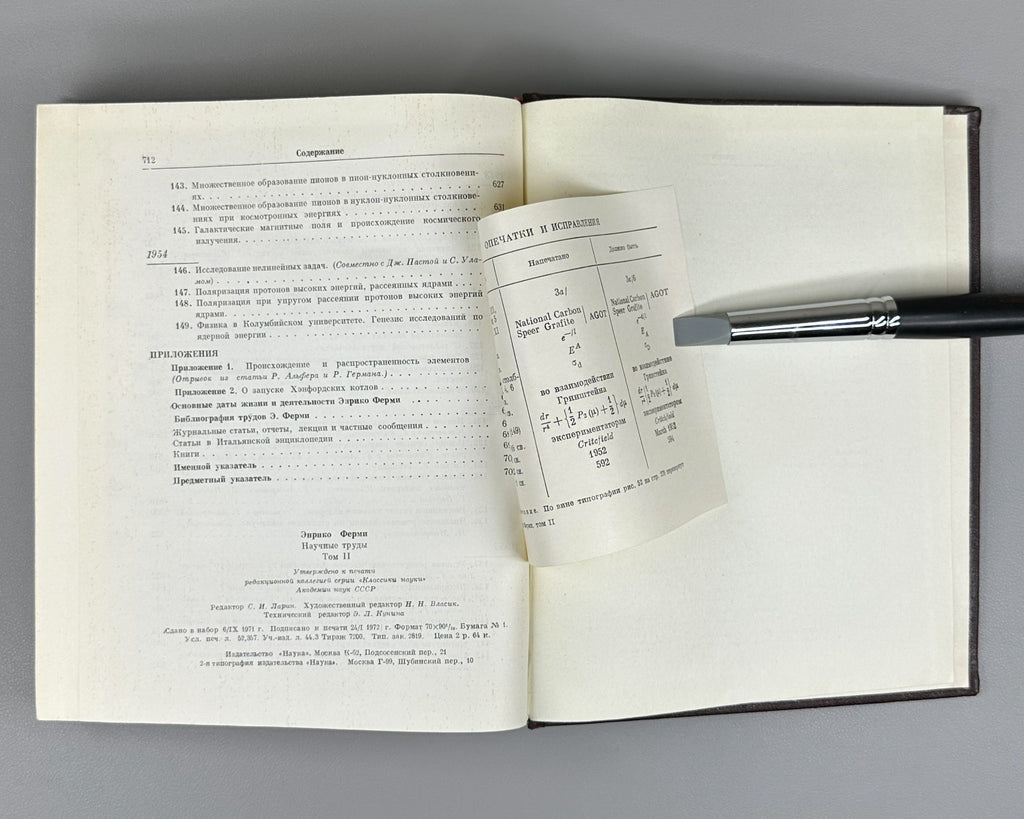 712
Содержание
143. Множественное образование пионов в пион-нуклонных столкновени-
ях. . . . . . . . . . . . . . . . . . . . . . 627
144. Множественное образование пионов в нуклон-нуклонных столкнове-
ниях при космотронных энергиях . . . . . . . . . . 631
145. Галактические магнитные поля и происхождение космического
излучения. . . . . . . . . . . . . . . . . . .
1954
146. Исследование нелинейных задач. (Совместно с Дж. Пастой и С. Ула-
мом) . . . . . . . . . . . . . . . . . . . .
147. Поляризация протонов высоких энергий, рассеянных ядрами . . . .
148. Поляризация при упругом рассеянии протонов высоких энергий
ядрами. . . . . . . . . . . . . . . . . . . .
149. Физика в Колумбийском университете. Генезис исследований по
ядерной энергии . . . . . . . . . . . . . . . . .
ПРИЛОЖЕНИЯ
Приложение 1. Происхождение и распространенность элементов
(Отрывок из статьи Р. Альфера и Р. Германа.) . . . . . . . .
Приложение 2. О запуске Хэнфордских котлов . . . . . . . .
Основные даты жизни и деятельности Энрико Ферми . . . . . .
Библиография трудов Э. Ферми . . . . . . . . . . . . .
Журнальные статьи, отчеты, лекции и частные сообщения . . . . .
Статьи в Итальянской энциклопедии . . . . . . . . . . . .
Книги . . . . . . . . . . . . . . . . . . . . .
Именной указатель . . . . . . . . . . . . . . . . .
Предметный указатель . . . . . . . . . . . . . . . .
Энрико Ферми
Научные труды
Том II
Утверждено к печати
редакционной коллегией серии «Классики науки»
Академии наук СССР
Редактор С. И. Ларин. Художественный редактор Н. Н. Власик.
Технический редактор Э. Л. Кунина
Сдано в набор 6/IX 1971 г. Подписано к печати 24/I 1972 г. Формат 70×90¹/₁₆. Бумага № 1.
Усл. печ. л. 52,357. Уч.-изд. л. 44,3 Тираж 7200. Тип. зак. 2819. Цена 2 р. 64 к.
Издательство «Наука». Москва К-62, Подсосенский пер., 21
2-я типография издательства «Наука». Москва Г-99, Шубинский пер., 10
ОПЕЧАТКИ И ИСПРАВЛЕНИЯ
Напечатано Должно быть
3a/ 3a/6
National Carbon | AGOT National Carbon | AGOT
Speer Grafile Speer Grafile
e⁻/l
E^A E_A
σ_d
во взаимодействии во взаимодействие
Гриншйтейна Гринштейна
dr/r⁴ + {1/2 P₂(μ) + 1/2} dμ
экспериментаторам экспериментатором
Critcfield Critchfield
1952 March 1952
592 594
По вине типографии рис. на стр. перевернут
том II